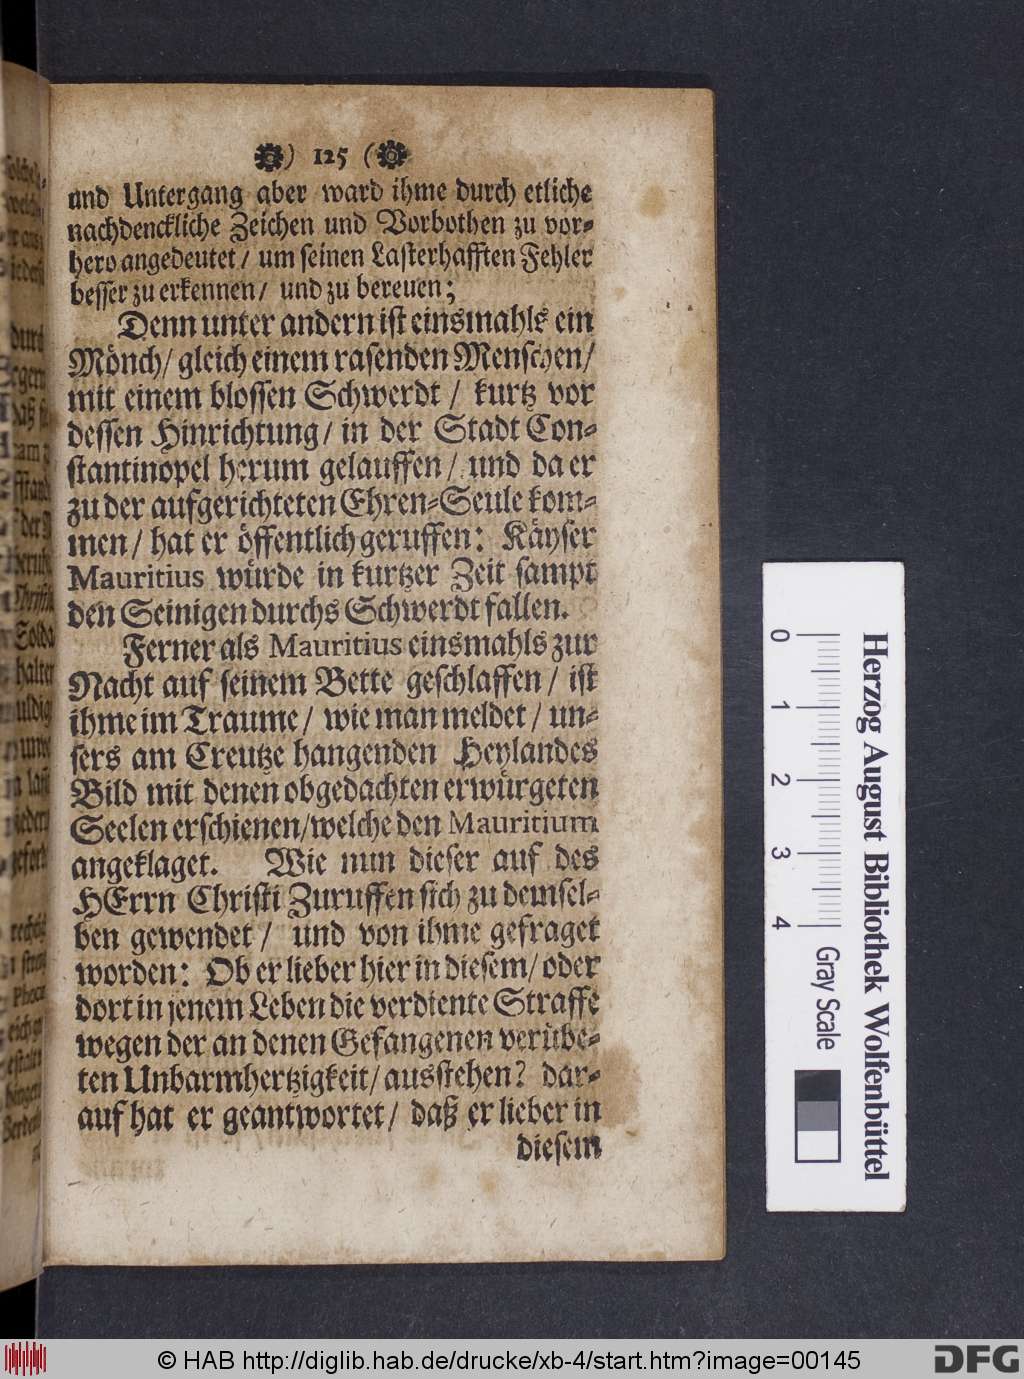 ) 125 (
und Untergang aber ward ihme durch etliche
nachdenckliche Zeichen und Vorbothen zu vor-
hero angedeutet/ um seinen Lasterhafften Fehler
besser zu erkennen/ und zu bereuen;
Denn unter andern ist einsmahls ein
Mönch/ gleich einem rasenden Menschen/
mit einem blossen Schwerdt / kurtz vor
dessen Hinrichtung/ in der Stadt Con-
stantinopel herum gelauffen/ und da er
zu der aufgerichteten Ehren-Seule kom-
men/ hat er öffentlich geruffen: Käyser
Mauritius würde in kurtzer Zeit sampt
den Seinigen durchs Schwerdt fallen.
Ferner als Mauritius einsmahls zur
Nacht auf seinem Bette geschlaffen/ ist
ihme im Traume/ wie man meldet/ un-
sers am Creutze hangenden Heylandes
Bild mit denen obgedachten erwürgeten
Seelen erschienen/welche den Mauritium
angeklaget. Wie nun dieser auf des
HErrn Christi Zuruffen sich zu demsel-
ben gewendet/ und von ihme gefraget
worden: Ob er lieber hier in diesem/ oder
dort in jenem Leben die verdiente Straffe
wegen der an denen Gefangenen verübe-
ten Unbarmhertzigkeit/ ausstehen? dar-
auf hat er geantwortet/ daß er lieber in
diesem
0 1 2 3 4
Gray Scale
Herzog August Bibliothek Wolfenbüttel
© HAB http://diglib.hab.de/drucke/xb-4/start.htm?image=00145
DFG